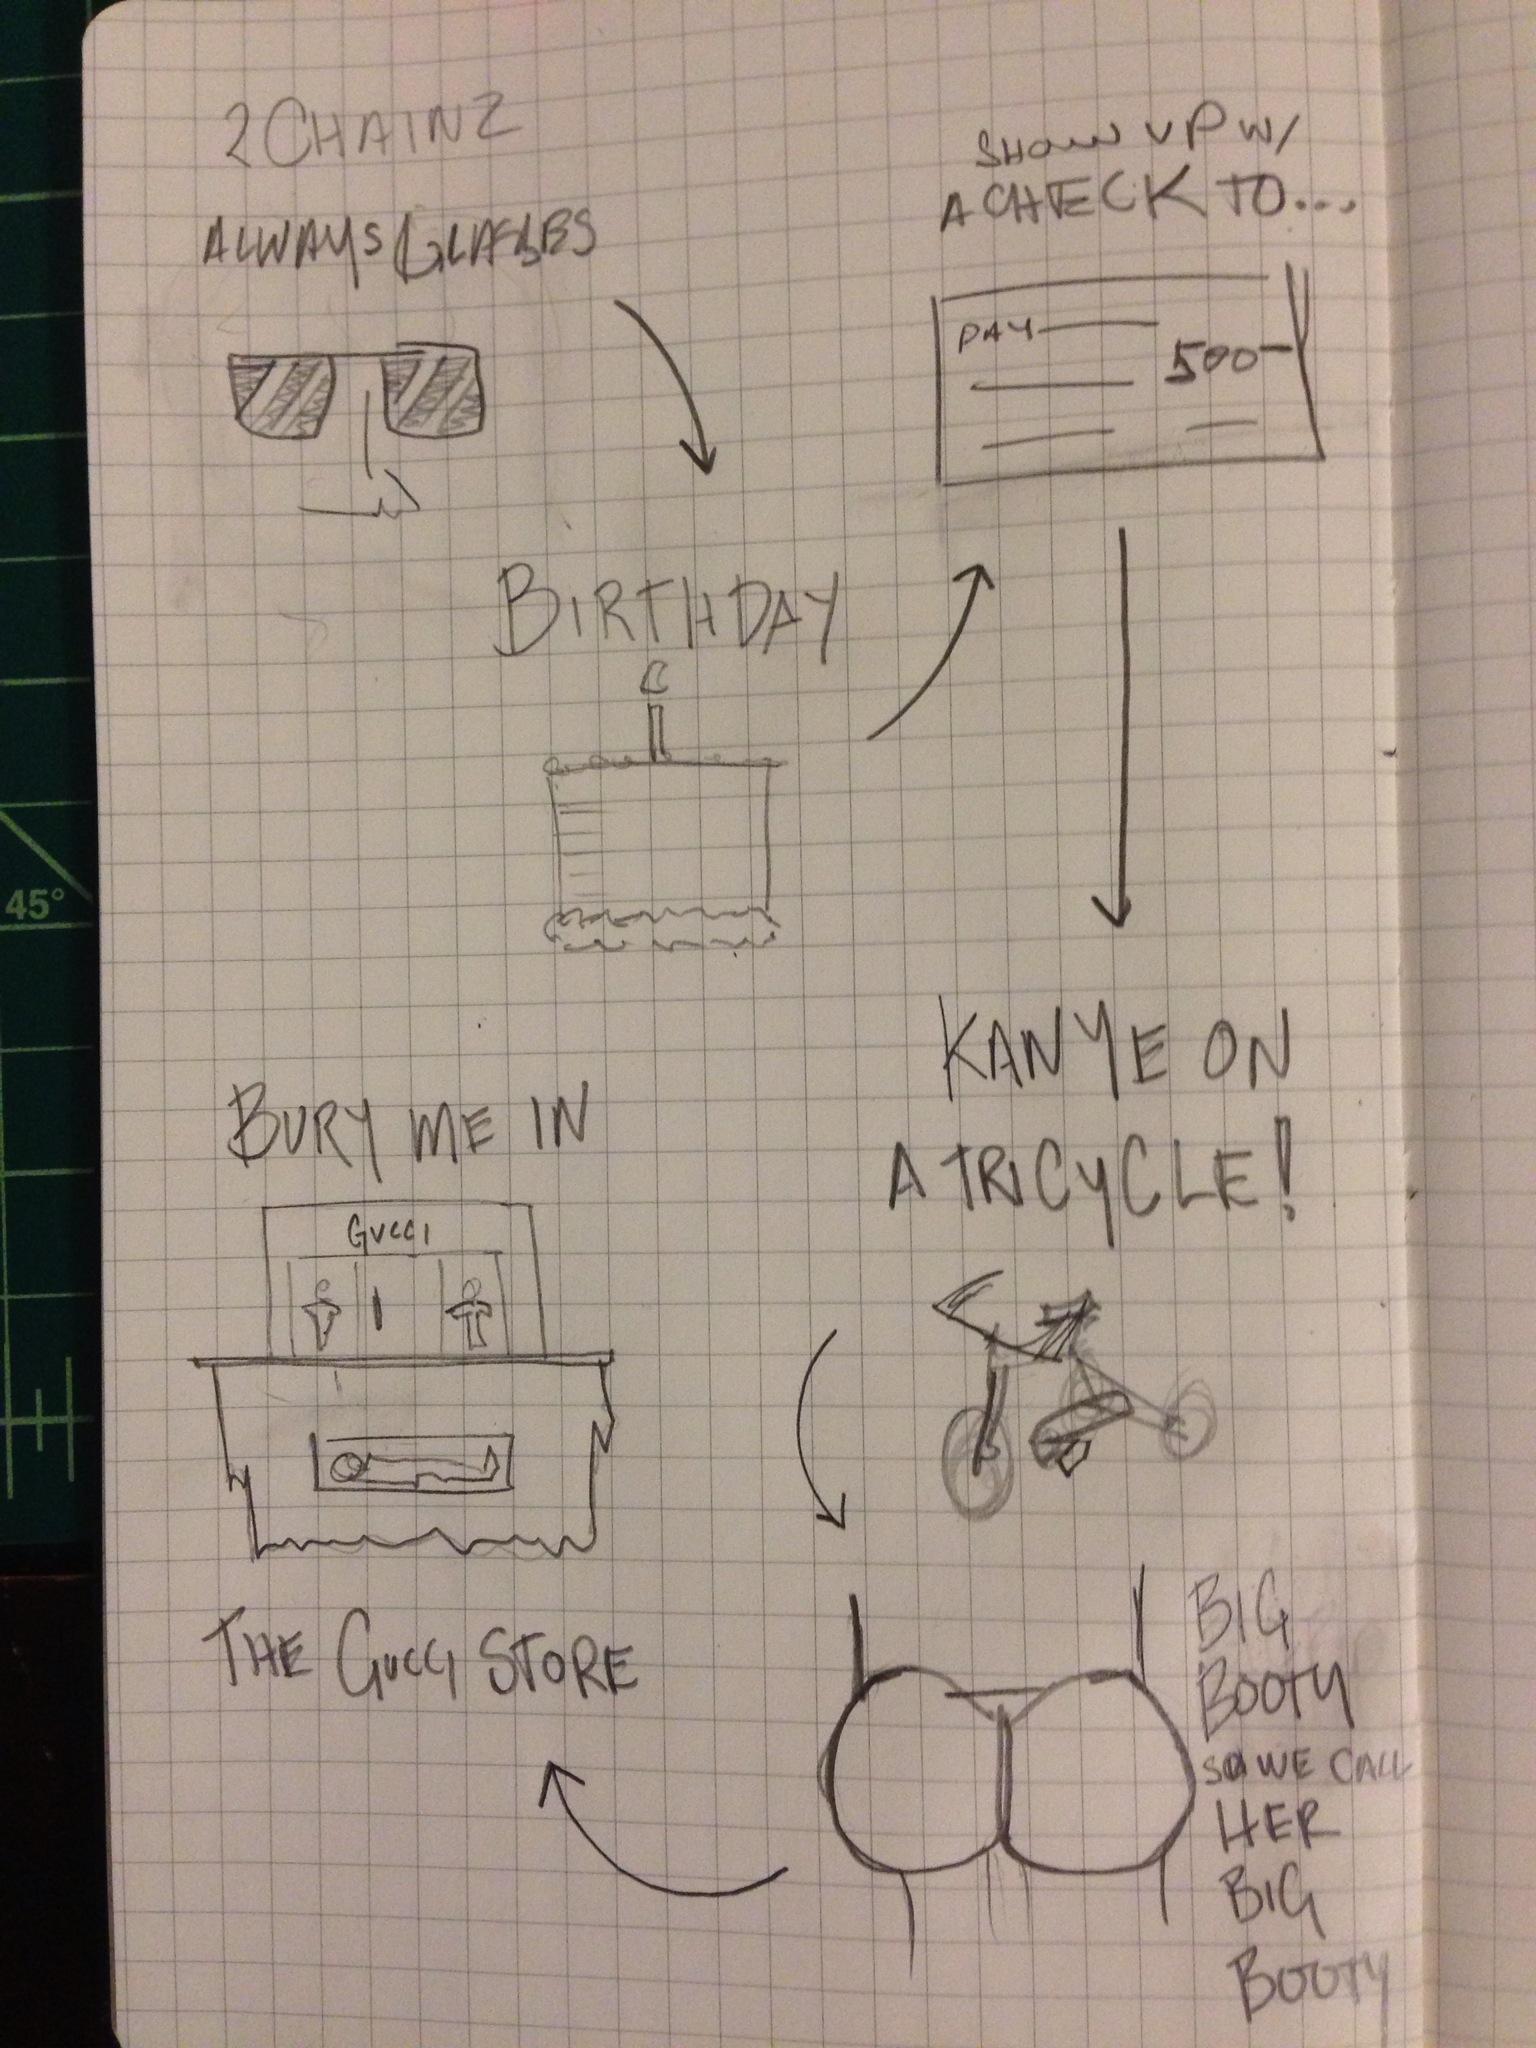 2 CHAINZ
ALWAYS GLASSES
BIRTHDAY
SHOW UP W/
A CHECK TO...
PAY
500
KANYE ON
A TRICYCLE!
BIG
BOOTY
SO WE CALL
HER
BIG
BOOTY
BURY ME IN
GUCCI
THE GUCCI STORE
45°